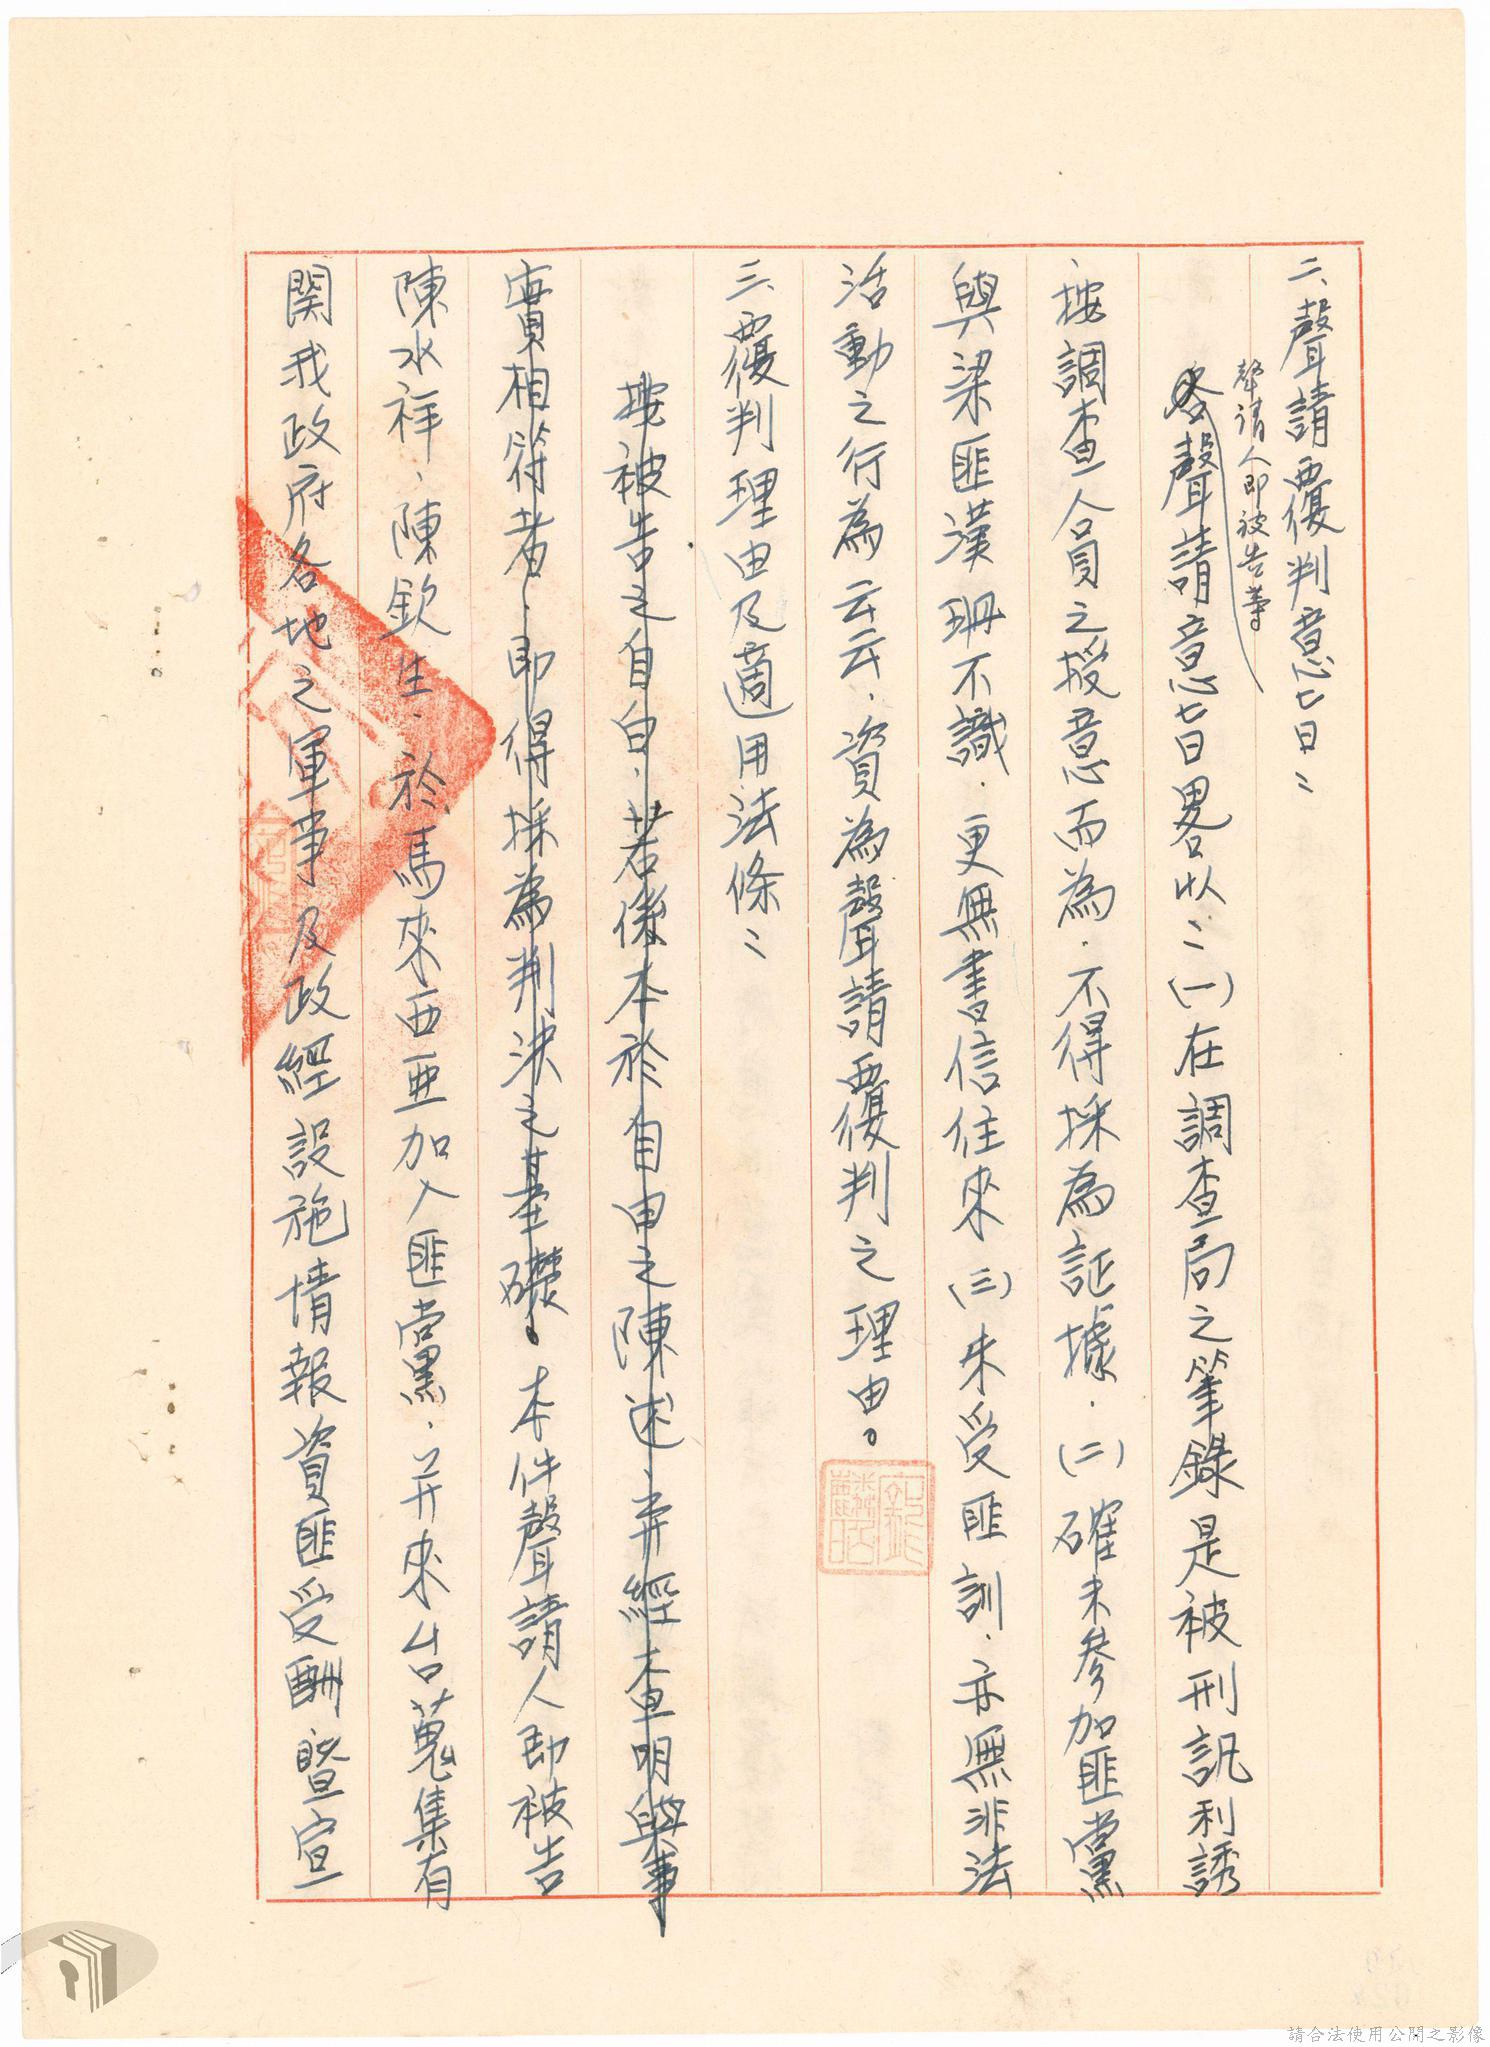 二、聲請覆判意旨：
聲請人即被告等
各聲請意旨畧以：(一)在調查局之筆錄是被刑訊利誘
按調查人員之授意而為．不得採為証據．(二)確未參加匪黨
與梁匪漢珊不識．更無書信往來(三)未受匪訓．亦無非法
活動之行為云云．資為聲請覆判之理由。
三、覆判理由及適用法條：
按被告之自白．若係本於自由之陳述并經查明與事
實相符者．即得採為判決之基礎。本件聲請人即被告
陳水祥、陳欽生．於馬來西亞加入匪黨．并來台蒐集有
関我政府各地之軍事及政經設施情報資匪受酬暨宣
請合法使用公開之影像